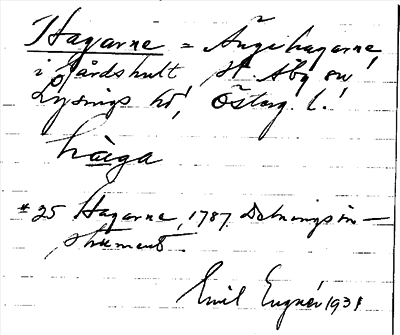 Hagarne = Ängehagarne,
i Gårdshult, St Åby sn,
Lysings hd, Österg. l.
hàega
*25 Hagarne, 1787 Delningsin-
strument.
Emil Engnér 1931